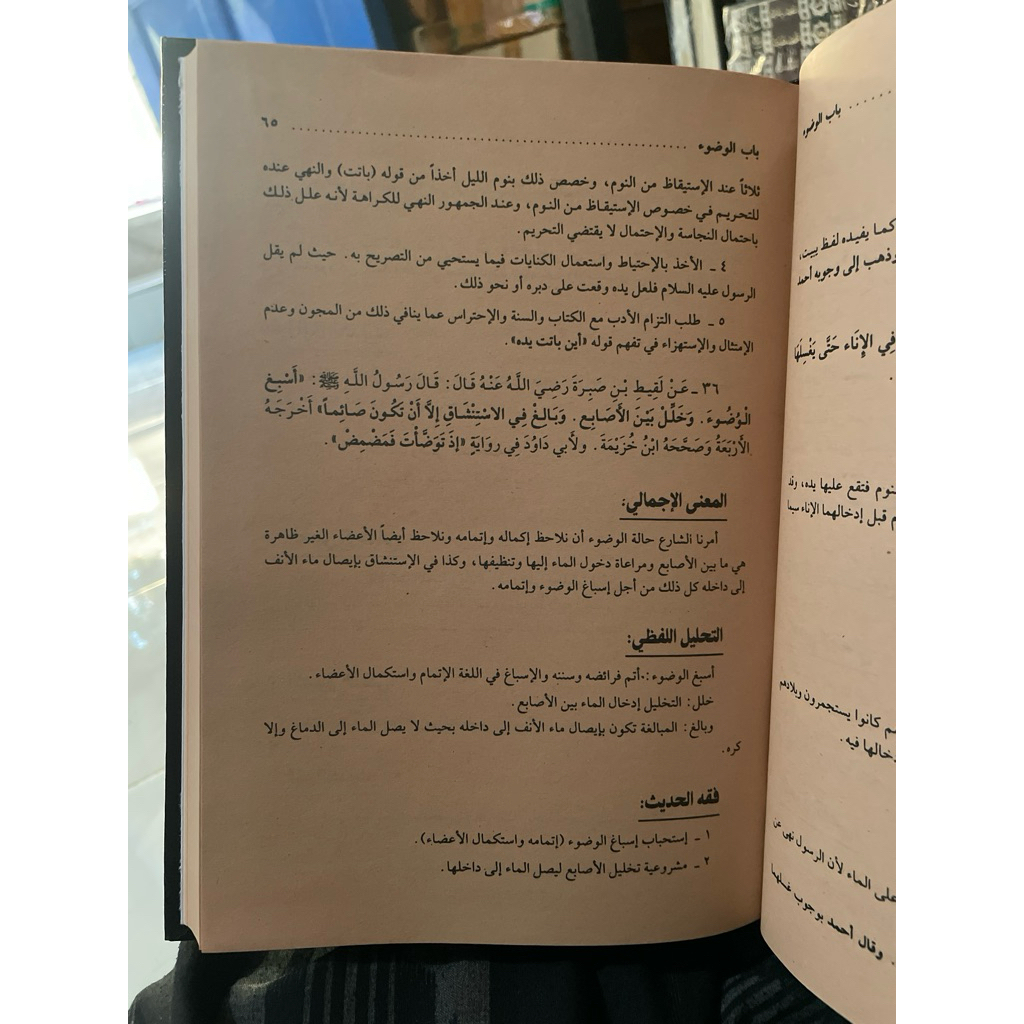 باب الوضوء ........................................................ ٦٥
ثلاثاً عند الإستيقاظ من النوم، وخصص ذلك بنوم الليل أخذاً من قوله (باتت) والنهي عنده
للتحريم في خصوص الإستيقاظ من النوم، وعند الجمهور النهي للكراهة لأنه علل ذلك
باحتمال النجاسة والإحتمال لا يقتضي التحريم.
٤ ـ الأخذ بالإحتياط واستعمال الكنايات فيما يستحيي من التصريح به. حيث لم يقل
الرسول عليه السلام فلعل يده وقعت على دبره أو نحو ذلك.
٥ ـ طلب التزام الأدب مع الكتاب والسنة والإحتراس عما ينافي ذلك من المجون وعدم
الإمتثال والإستهزاء في تفهم قوله «أين باتت يده».
٣٦ ـ عَنْ لَقِيطِ بْنِ صَبِرَةَ رَضِيَ اللَّهُ عَنْهُ قَالَ: قَالَ رَسُولُ اللَّهِ ﷺ: «أَسْبِغِ
الْوُضُوءَ. وَخَلِّلْ بَيْنَ الأَصَابِعِ. وَبَالِغْ فِي الاسْتِنْشَاقِ إِلاَّ أَنْ تَكُونَ صَائِماً» أَخْرَجَهُ
الأَرْبَعَةُ وَصَحَّحَهُ ابْنُ خُزَيْمَةَ. ولأَبي دَاوُدَ فِي روَايَةٍ «إذَ تَوَضَّأْتَ فَمَضْمِضْ».
المعنى الإجمالي:
أمرنا الشارع حالة الوضوء أن نلاحظ إكماله وإتمامه ونلاحظ أيضاً الأعضاء الغير ظاهرة
هي ما بين الأصابع ومراعاة دخول الماء إليها وتنظيفها، وكذا في الإستنشاق بإيصال ماء الأنف
إلى داخله كل ذلك من أجل إسباغ الوضوء وإتمامه.
التحليل اللفظي:
أسبغ الوضوء: أتم فرائضه وسننه والإسباغ في اللغة الإتمام واستكمال الأعضاء.
خلل: التخليل إدخال الماء بين الأصابع.
وبالغ: المبالغة تكون بإيصال ماء الأنف إلى داخله بحيث لا يصل الماء إلى الدماغ وإلا
كره.
فقه الحديث:
١ ـ إستحباب إسباغ الوضوء (إتمامه واستكمال الأعضاء).
٢ ـ مشروعية تخليل الأصابع ليصل الماء إلى داخلها.
باب الوضوء ......
كما يفيده لفظ يبيت،
وذهب إلى وجوبه أحمد
فِي الإِنَاء حَتَّى يَغْسِلَهَا
نوم فتقع عليها يده، وقد
م قبل إدخالهما الإناء سيما
م كانوا يستجمرون وبلادهم
خالها فيه.
على الماء لأن الرسول نهى عن
وقال أحمد بوجوب غسلهما